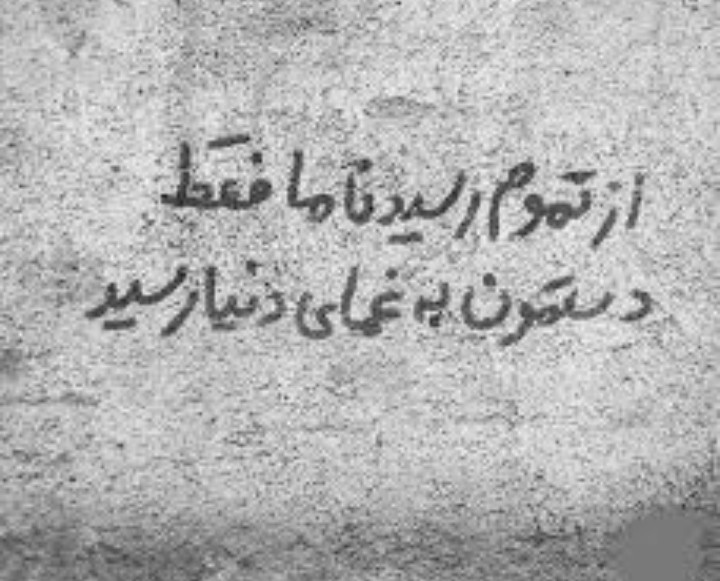 از تموم رسیدنا ما فقط
دستمون به غمای دنیا رسید